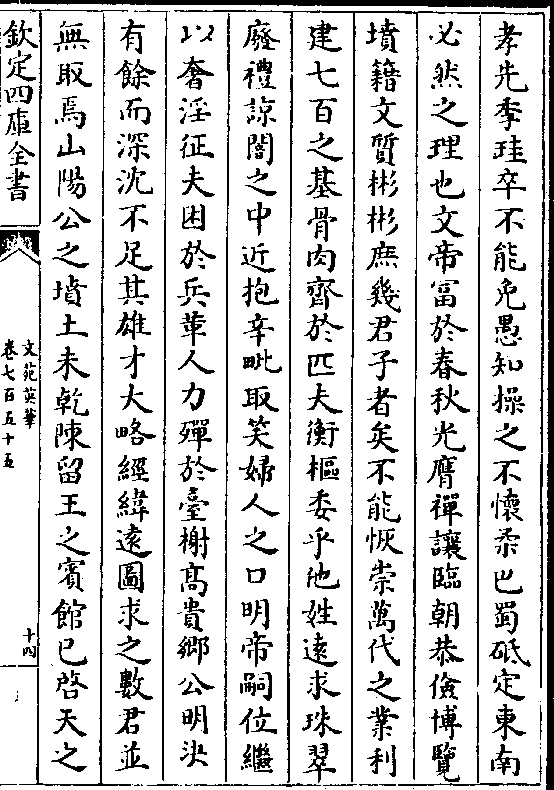 孝先季珪卒不能免愚知操之不懷柔巴蜀砥定東南
必然之理也文帝富於春秋光膺禪讓臨朝恭儉博覽
墳籍文質彬彬庶幾君子者矣不能恢崇萬代之業利
建七百之基骨肉齊於匹夫衡樞委乎他姓遠求珠翠
廢禮諒闇之中近抱辛毗取笑婦人之口明帝嗣位繼
以奢淫征夫困於兵革人力殫於臺榭高貴鄉公明決
有餘而深沈不足其雄才大略經緯遠圖求之數君並
無取焉山陽公之墳土未乾陳留王之賓館已啓天之
欽定四庫全書
文苑英華
卷七百五十五
十四